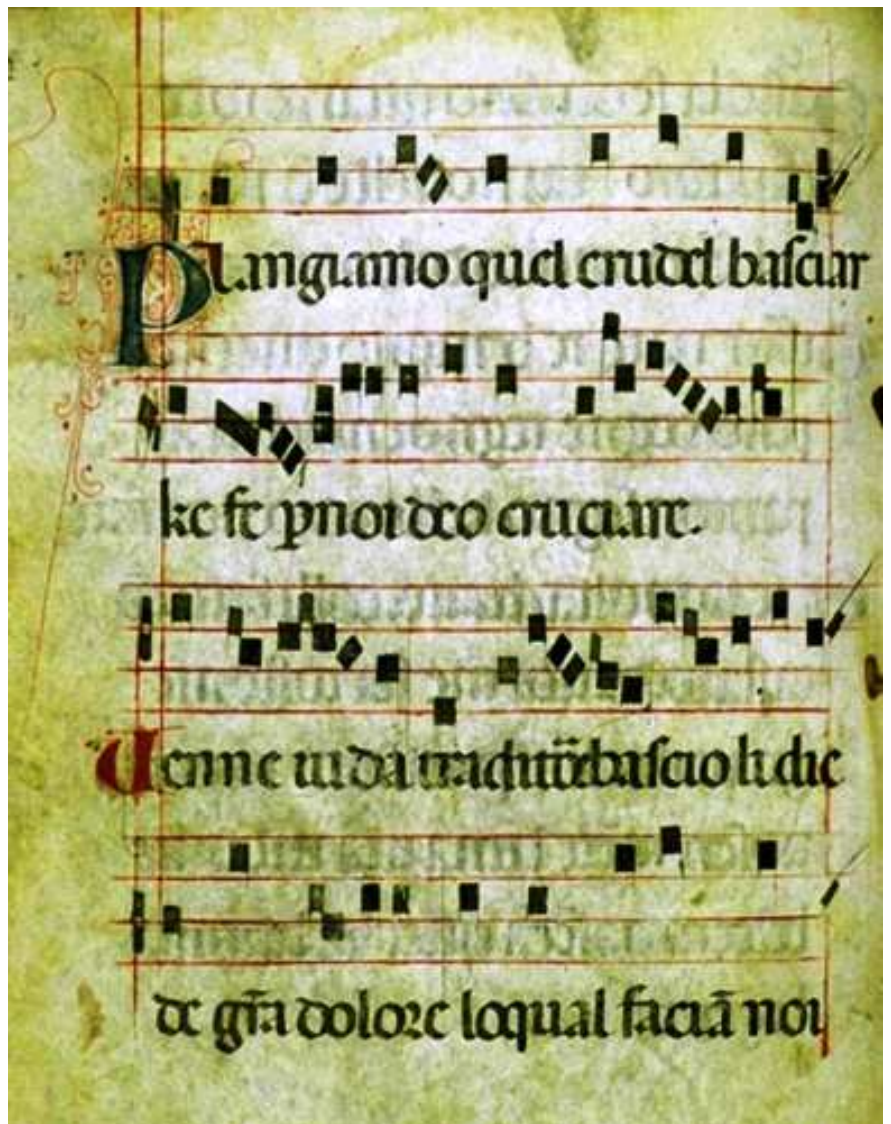 Plangiamo quel crudel basciar
ke fe p̱ noi deo cruciare.
Venne iuda traditor̄ bascio li die
de grā dolore loqual faciā noi